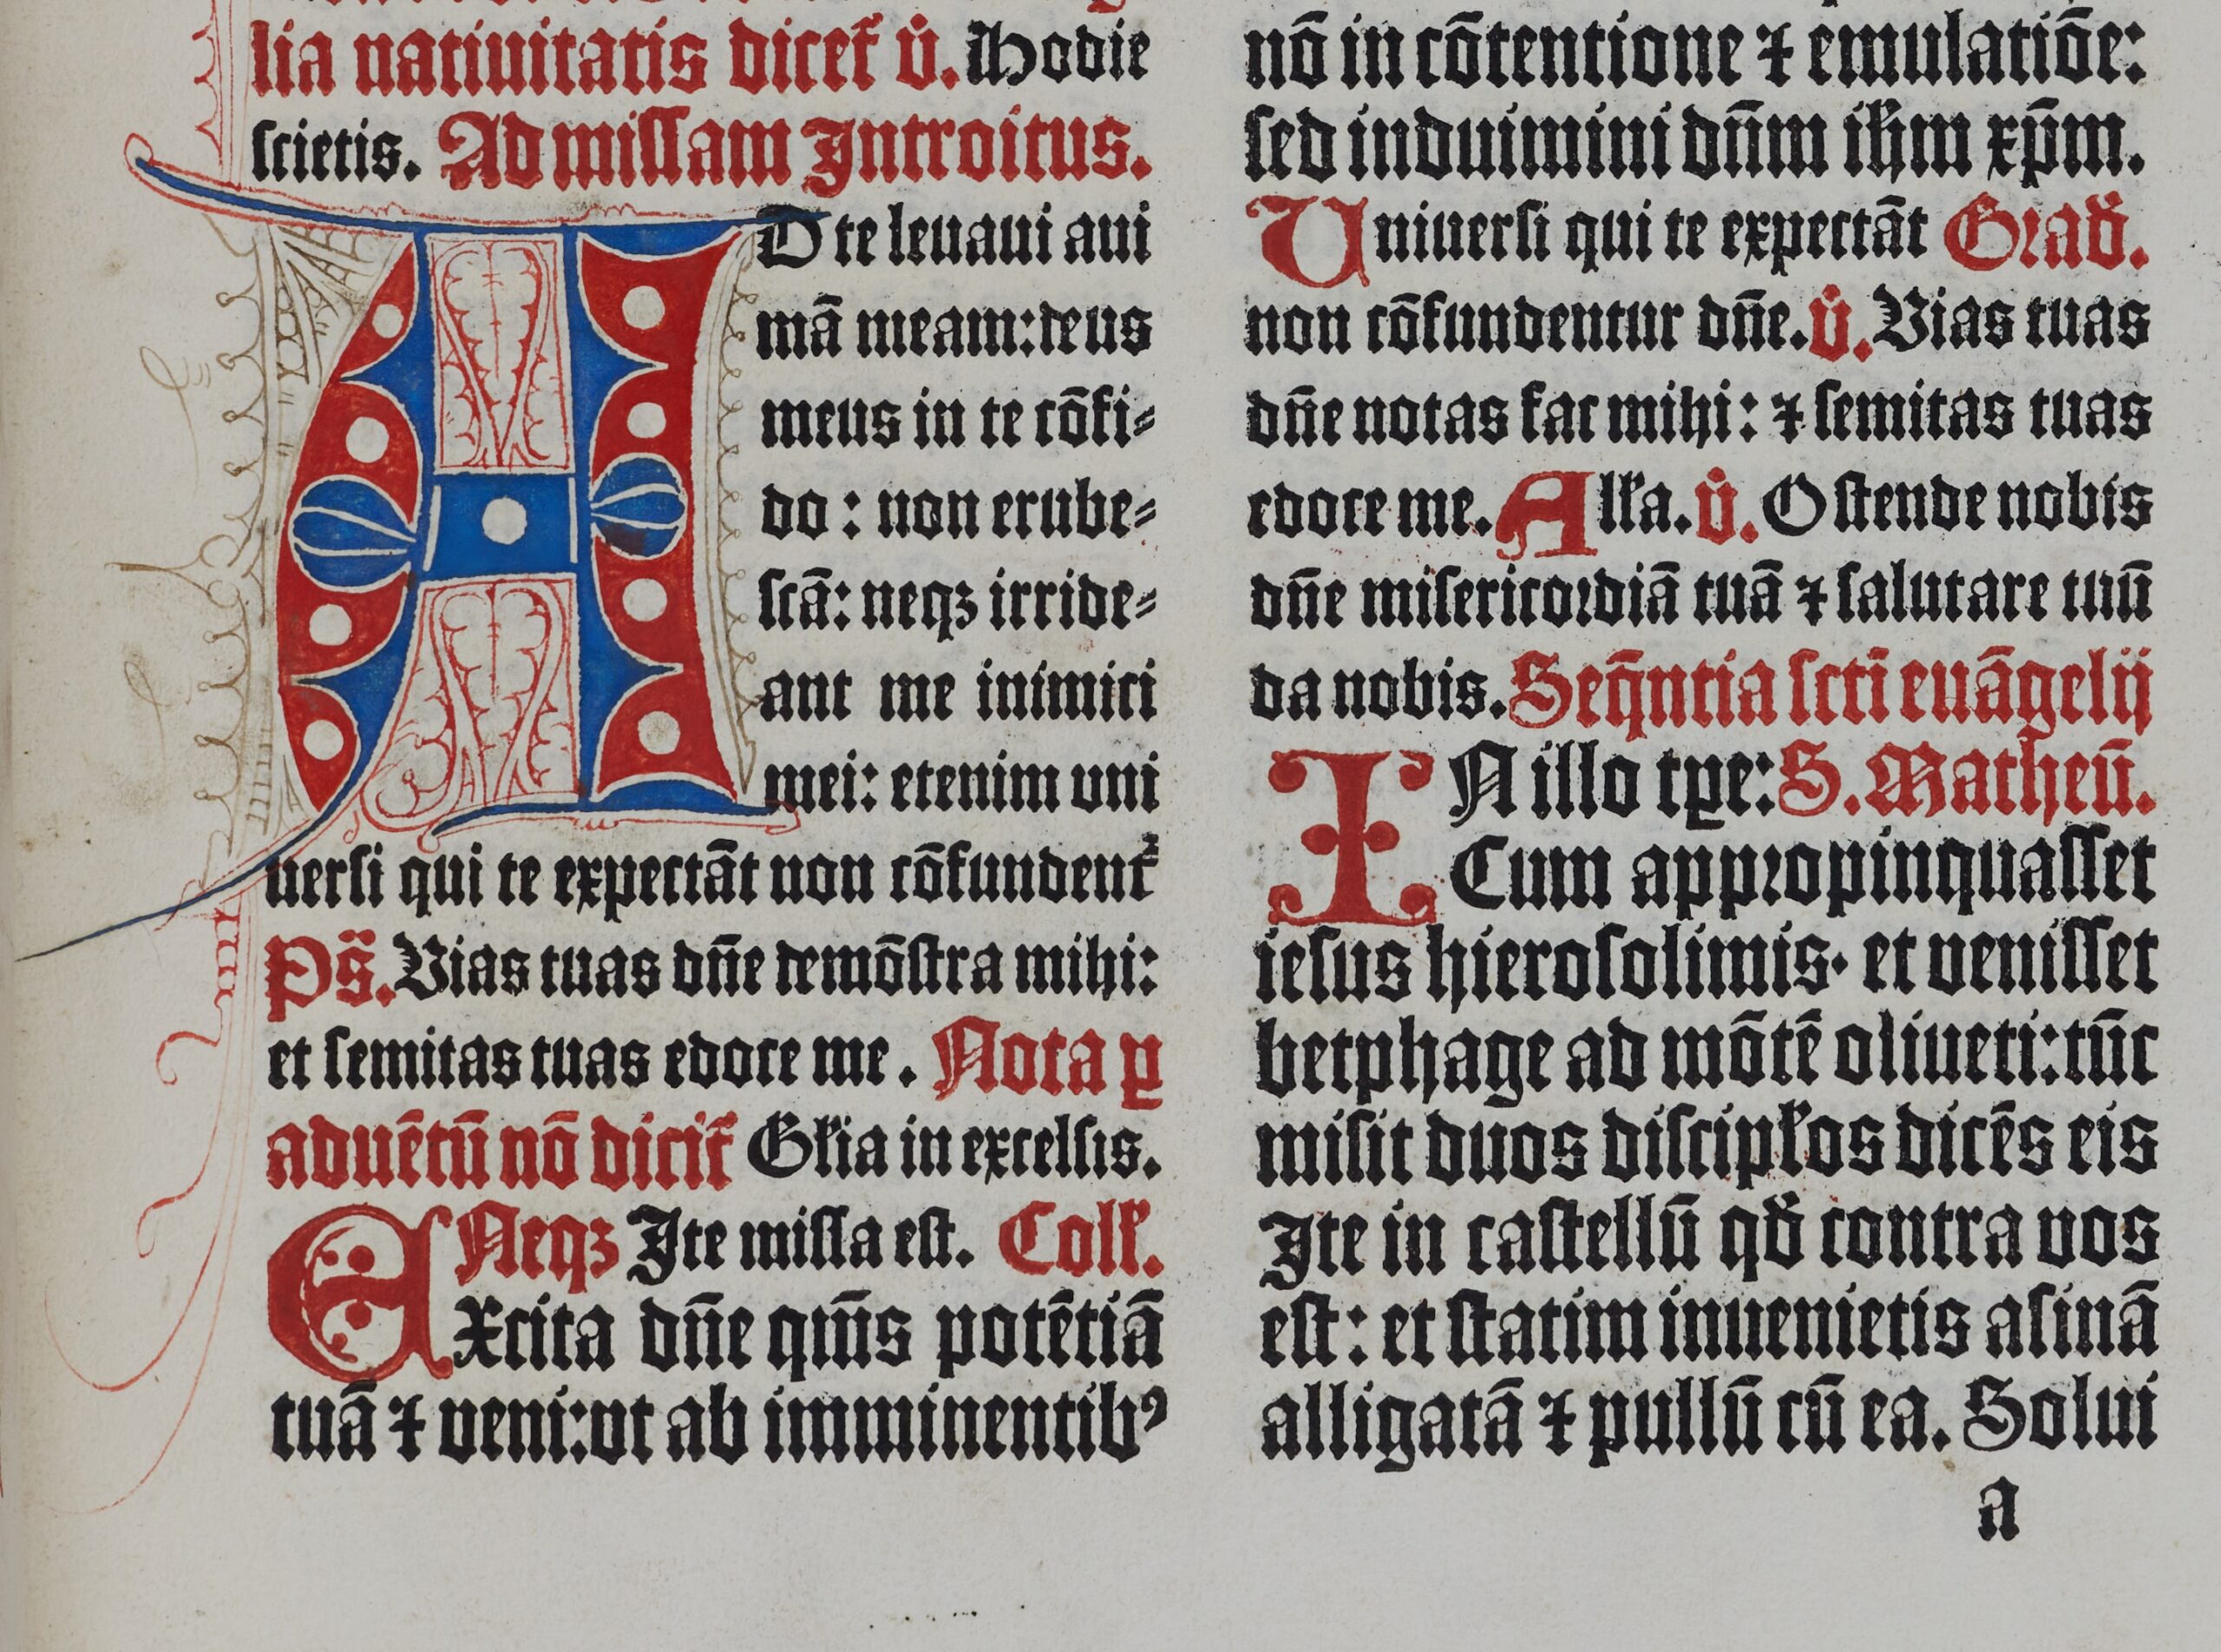 lia natiuitatis dicet᷑ v̊. Hodie
scietis. Ad missam Introitus.
AD te leuaui ani
mā meam: deus
meus in te cōfi⸗
do : non erube⸗
scā: neqꝫ irride⸗
ant me inimici
mei: etenim vni
uersi qui te expectāt non cōfundent᷑
Ps̄. Vias tuas dn̄e demōstra mihi:
et semitas tuas edoce me. Nota ꝑ
aduētū nō dicit᷑ Gl'ia in excelsis.
Neqꝫ Ite missa est. Coll'.
EXcita dn̄e qm̄s potētiā
tuā ⁊ veni: vt ab imminentibꝰ
nō in cōtentione ⁊ emulatiōe:
sed induimini dn̄m ih̄m xp̄m.
Uniuersi qui te expectāt Grad'.
non cōfundentur dn̄e. v̊. Vias tuas
dn̄e notas fac mihi: ⁊ semitas tuas
edoce me. All'a. v̊. Ostende nobis
dn̄e misericoꝛdiā tuā ⁊ salutare tuū
da nobis. Seq̄ntia scti̅ euāgelij
IN illo tꝑe: S. Matheū.
Cum appꝛopinquasset
iesus hierosolimis· et venisset
betphage ad mōtē oliueti: tūc
misit duos discipl'os dicēs eis
Ite in castellū qd' contra vos
est: et statim inuenietis asinā
alligatā ⁊ pullū cū ea. Solui
a